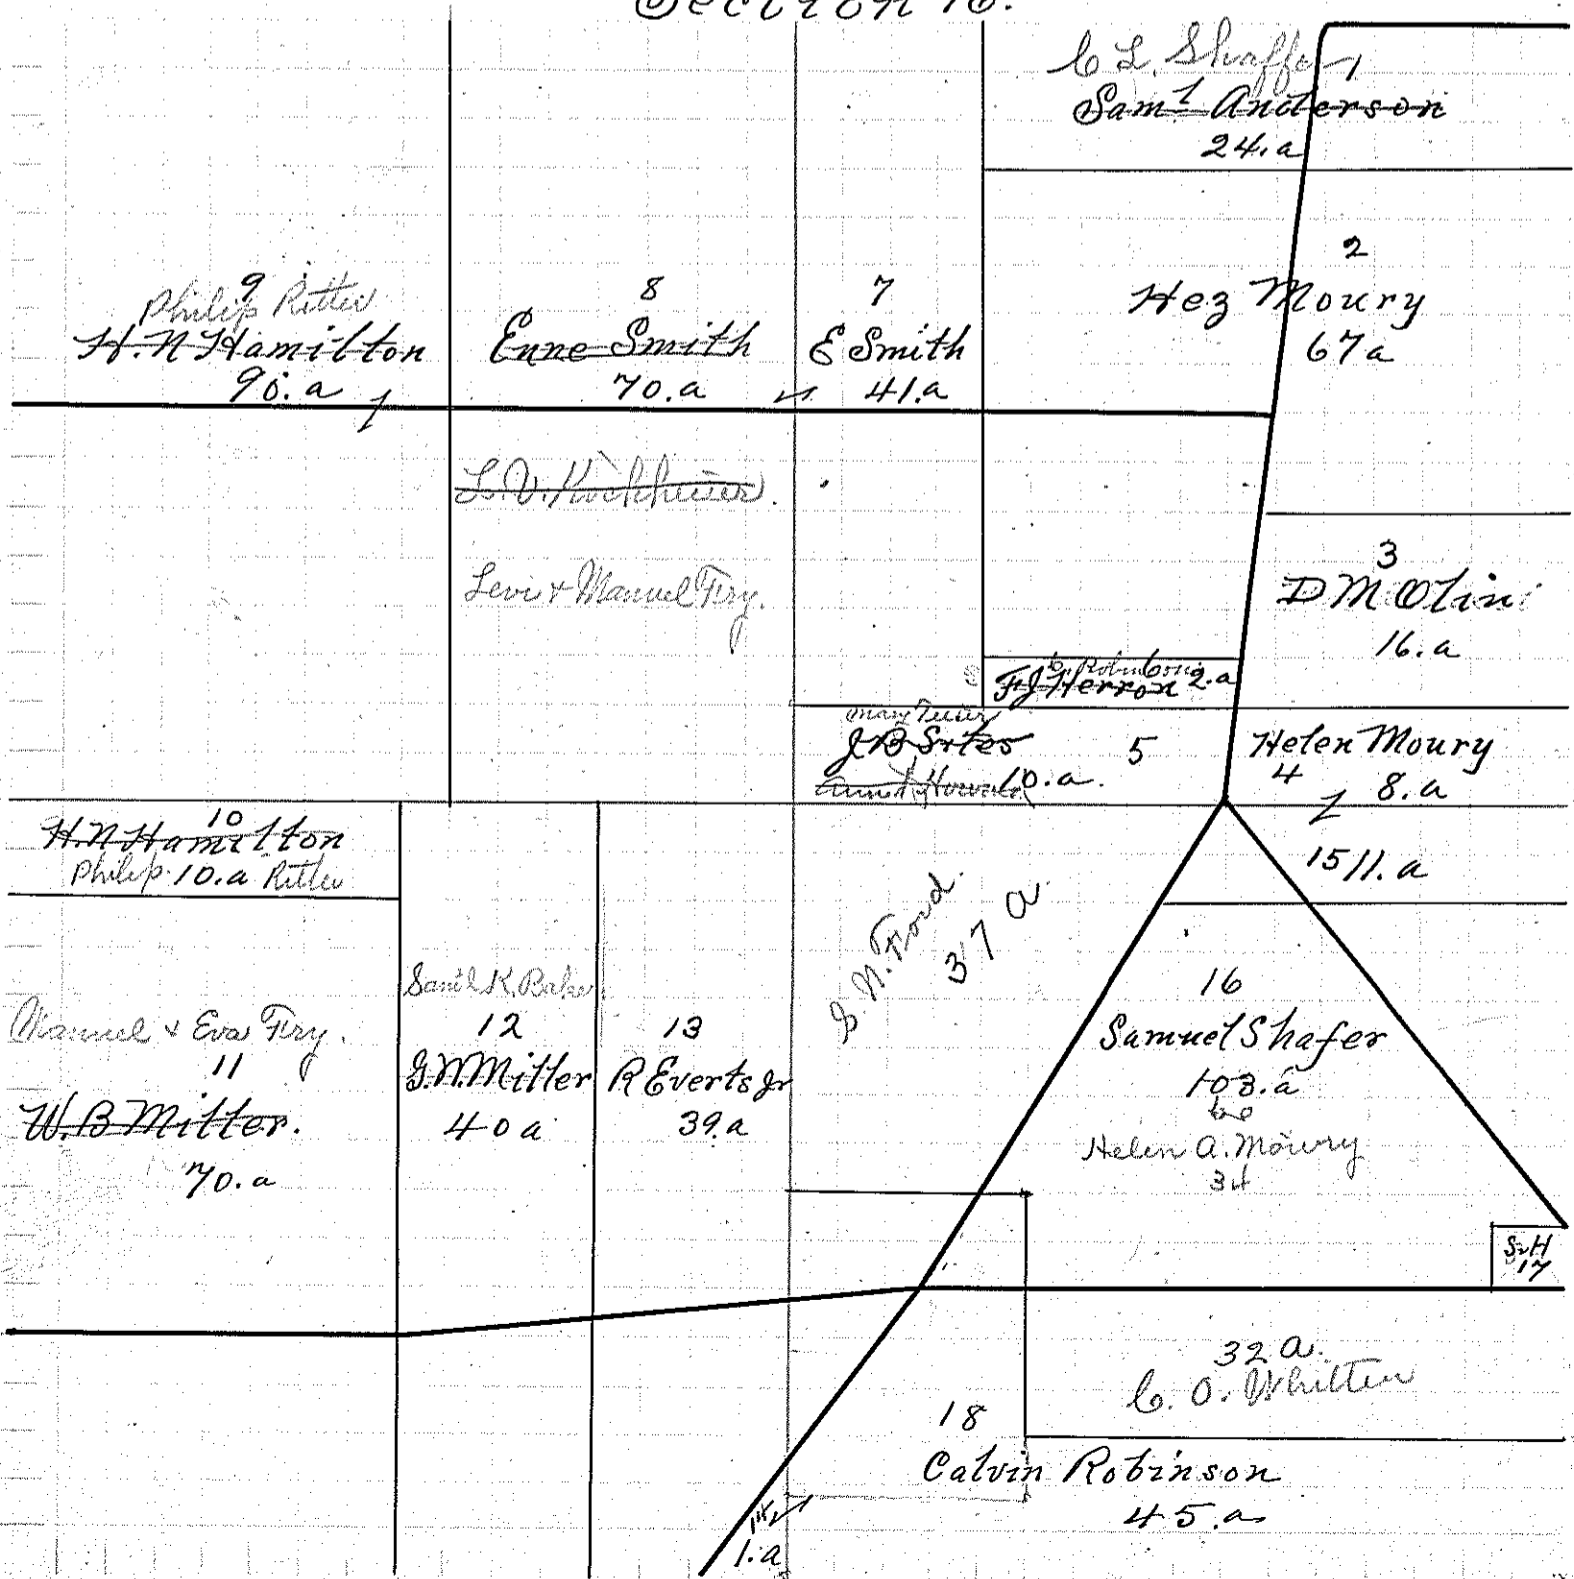 Section 16.
C L. Shaffer 1
Saml Anderson
24.a
2
Hez Moury
67a
9
Philip Ritter
H.N Hamilton
90.a
8
Enne Smith
70.a
7
E Smith
41.a
Levi & Manuel Fry.
3
D M Olin
16.a
C. Robinson
F J Herron 2.a
Mary
J B Sites 5
10.a.
Helen Moury
4 8.a
10
H.N Hamilton
Philip 10.a Ritter
15 11.a
S. N. Ford.
37 a.
Manuel & Eva Fry.
11
W. B Miller.
70.a
Saml K. Baker
12
G. W. Miller
40 a
13
R Everts Jr
39.a
16
Samuel Shafer
103.a
60
Helen A. Moury
34
S.H
17
32 a.
C. O. Whitten
18
Calvin Robinson
45.a
14
1.a